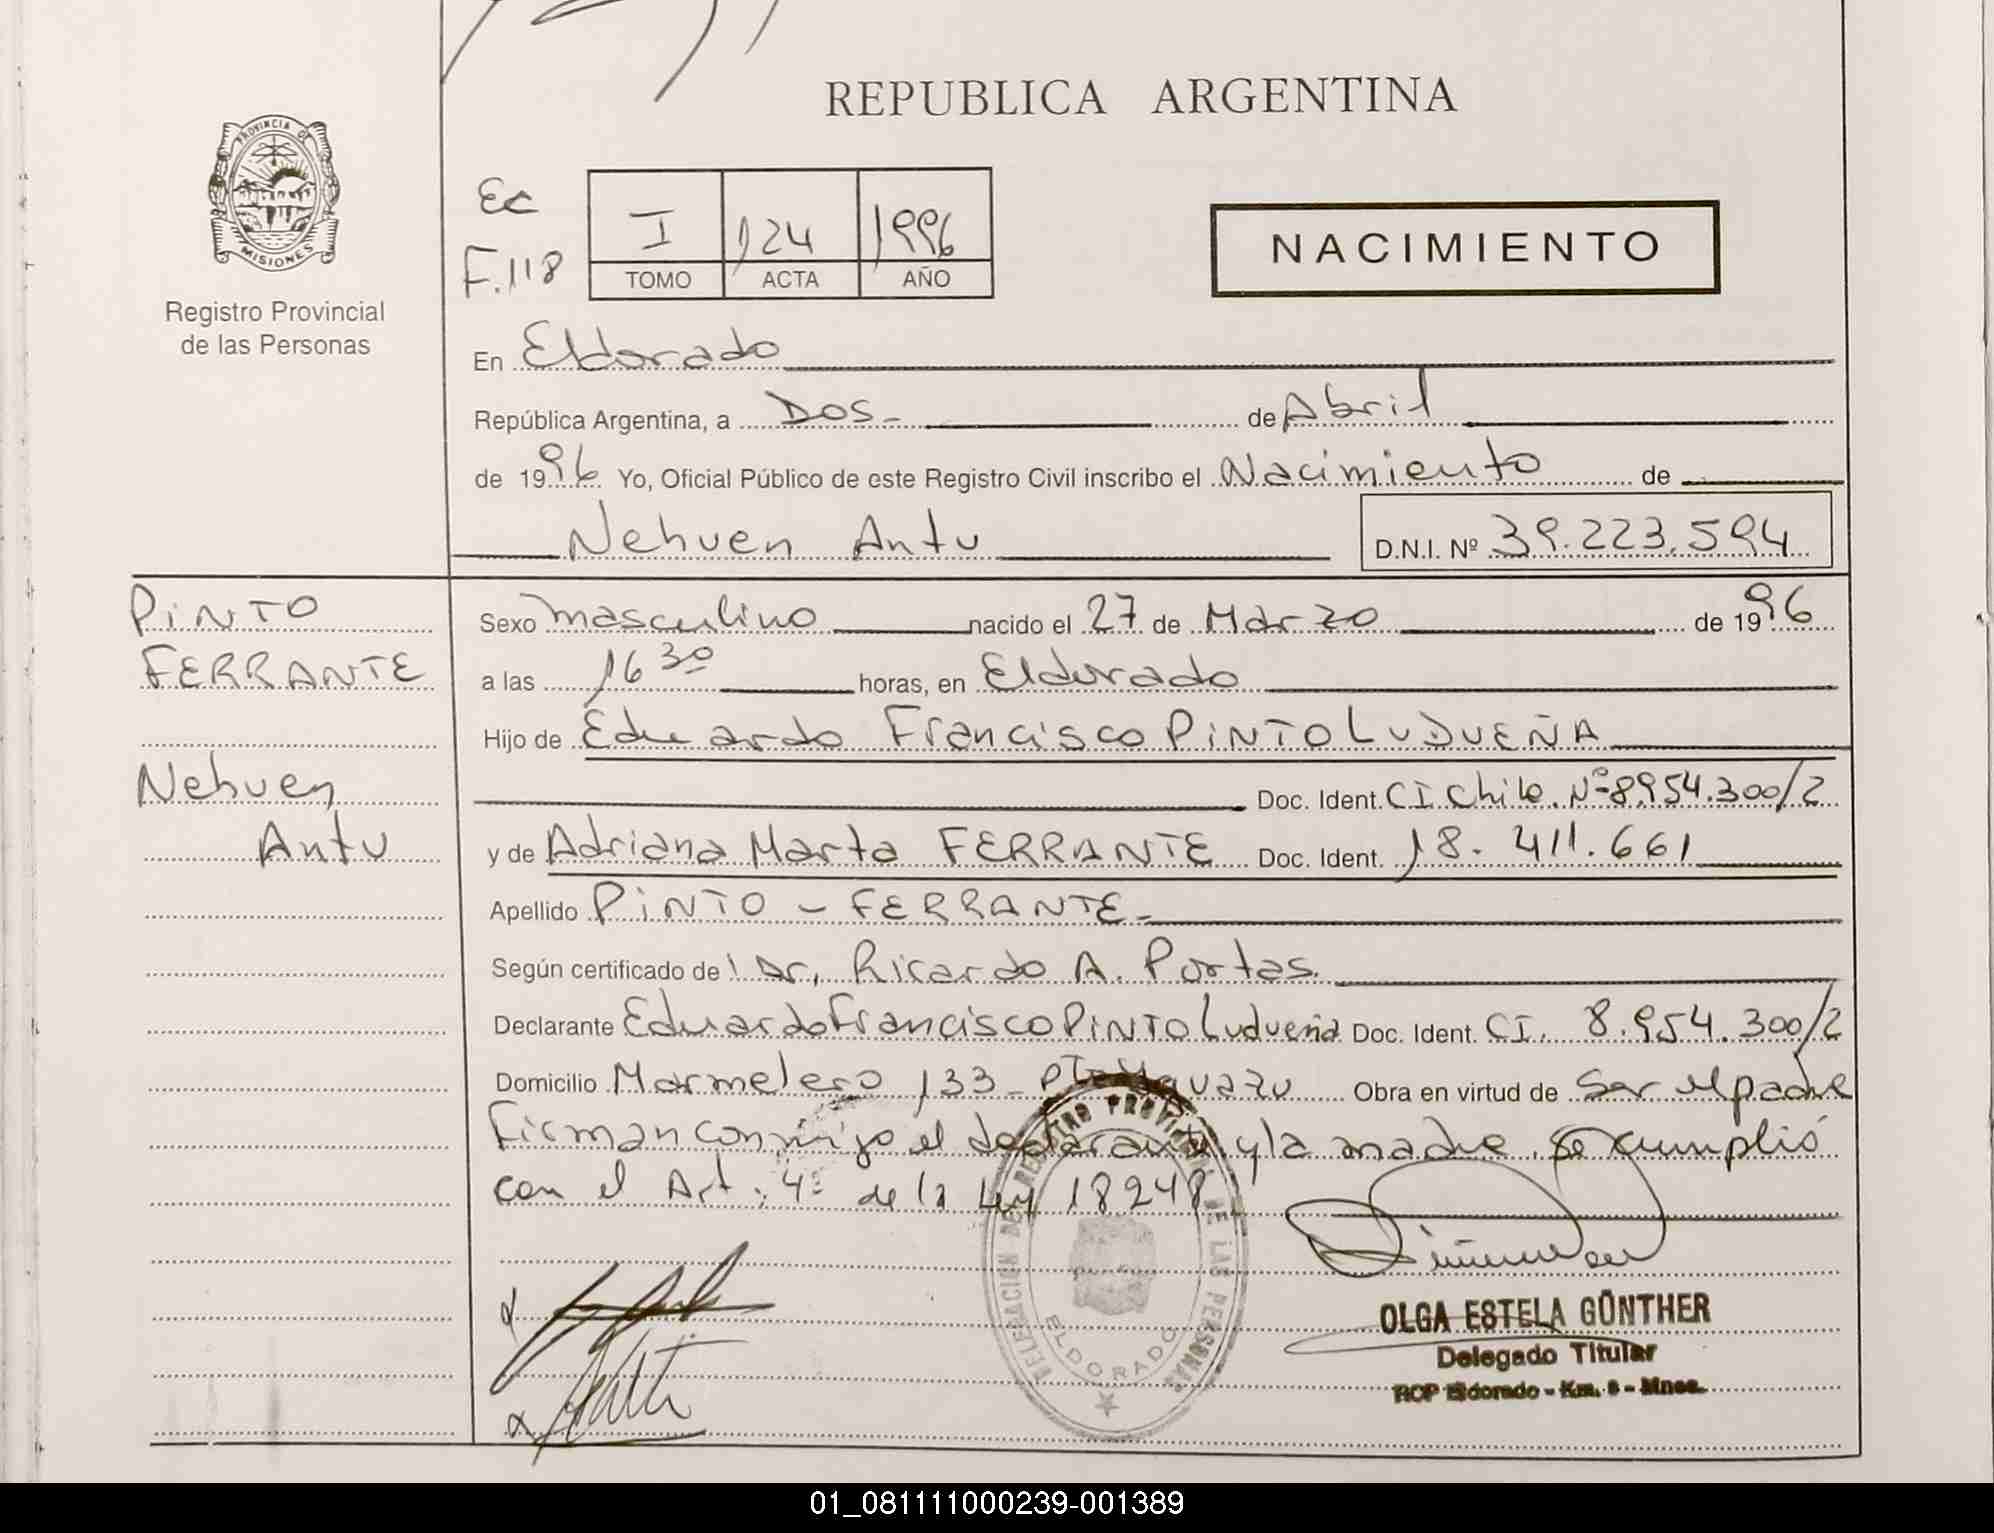 REPUBLICA ARGENTINA
PROVINCIA DE
MISIONES
Registro Provincial
de las Personas
Ec
F.118
I 124 1996
TOMO ACTA AÑO
NACIMIENTO
En Eldorado
República Argentina, a Dos- de Abril
de 1996 Yo, Oficial Público de este Registro Civil inscribo el Nacimiento de
Nehuen Antu D.N.I. Nº 39.223.594
PINTO
FERRANTE
Nehuen
Antu
Sexo masculino nacido el 27 de Marzo de 1996
a las 16 30 horas, en Eldorado
Hijo de Eduardo Francisco PINTO LUDUEÑA
Doc. Ident. CI Chile. Nº 8954.300/2
y de Adriana Marta FERRANTE Doc. Ident. 18. 411.661
Apellido PINTO - FERRANTE-
Según certificado de Dr. Ricardo A. Portas.
Declarante Eduardo Francisco PINTO Ludueña Doc. Ident. CI. 8.954.300/2
Domicilio Marmelero 133- Pto Yguazu Obra en virtud de Ser el padre
Firman conmigo el declarante y la madre. Se cumplió
con el Art. 4º de la Ley 18248
DELEGACION DEL REGISTRO PROVINCIAL DE LAS PERSONAS
ELDORADO
OLGA ESTELA GÜNTHER
Delegado Titular
RCP Eldorado - Km. 8 - Mnes.
01_081111000239-001389